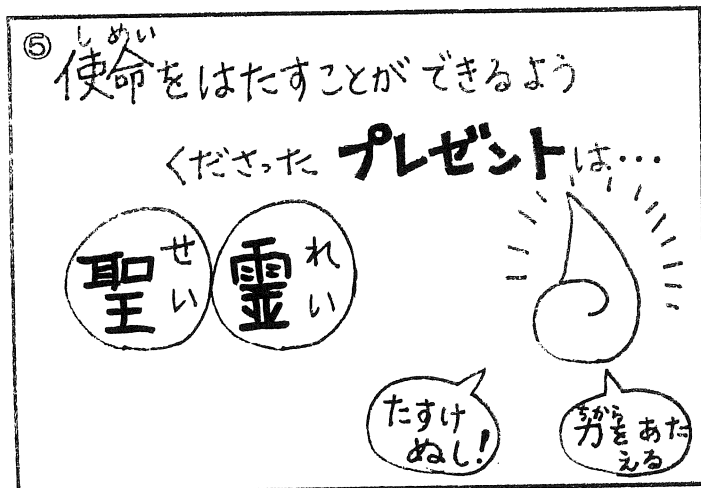 ⑤
しめい
使命をはたすことができるよう
くださった プレゼントは…
聖霊
せいれい
たすけ
ぬし!
ちから
力をあた
える